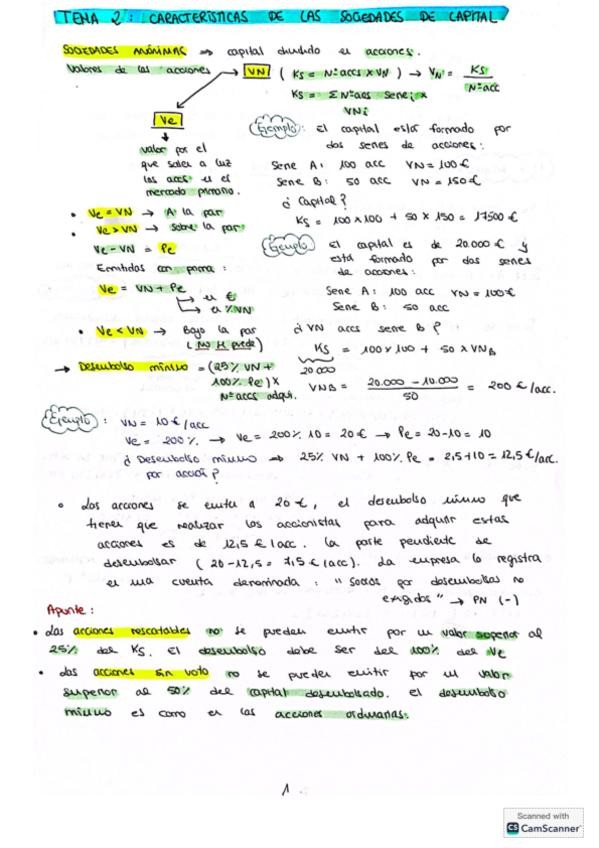 TEMA 2: CARACTERÍSTICAS DE LAS SOCIEDADES DE CAPITAL
SOCIEDADES ANÓNIMAS → capital dividido en acciones.
Valores de las acciones → VN (KS = Nº accs x VN) → VN = KS / Nº acc
KS = Σ Nº accs serie i x VNi
Ve
↓
valor por el
que salen a luz
las accs en el
mercado primario.
Ejemplo: El capital está formado por
dos series de acciones:
Serie A: 100 acc VN = 100 €
Serie B: 50 acc VN = 150 €
¿Capital?
KS = 100 x 100 + 50 x 150 = 17500 €
• Ve = VN → A la par
• Ve > VN → Sobre la par
Ve - VN = Pe
Emitidas con prima:
Ve = VN + Pe
→ en €
→ en % VN
Ejemplo El capital es de 20.000 € y
está formado por dos series
de acciones:
Serie A: 100 acc VN = 100 €
Serie B: 50 acc
¿VN accs serie B?
• Ve < VN → Bajo la par
(NO se puede)
KS = 100 x 100 + 50 x VNB
20.000
VNB = 20.000 - 10.000 / 50 = 200 €/acc.
→ Desembolso mínimo = (25% VN +
100% Pe) x
Nº accs adqui.
Ejemplo: VN = 10 €/acc
Ve = 200% → Ve = 200% 10 = 20 € → Pe = 20 - 10 = 10
¿Desembolso mínimo → 25% VN + 100% Pe = 2,5 + 10 = 12,5 €/acc.
por acción?
• Las acciones se emiten a 20 €, el desembolso mínimo que
tienen que realizar los accionistas para adquirir estas
acciones es de 12,5 €/acc. La parte pendiente de
desembolsar (20 - 12,5 = 7,5 €/acc). La empresa lo registra
en una cuenta denominada: "Socios por desembolsos no
exigidos" → PN (-)
Apunte:
• Las acciones rescatables no se pueden emitir por un valor superior al
25% del KS. El desembolso debe ser del 100% del Ve
• Las acciones sin voto no se pueden emitir por un valor
superior al 50% del capital desembolsado. El desembolso
mínimo es como en las acciones ordinarias.
1
Scanned with
CS CamScanner